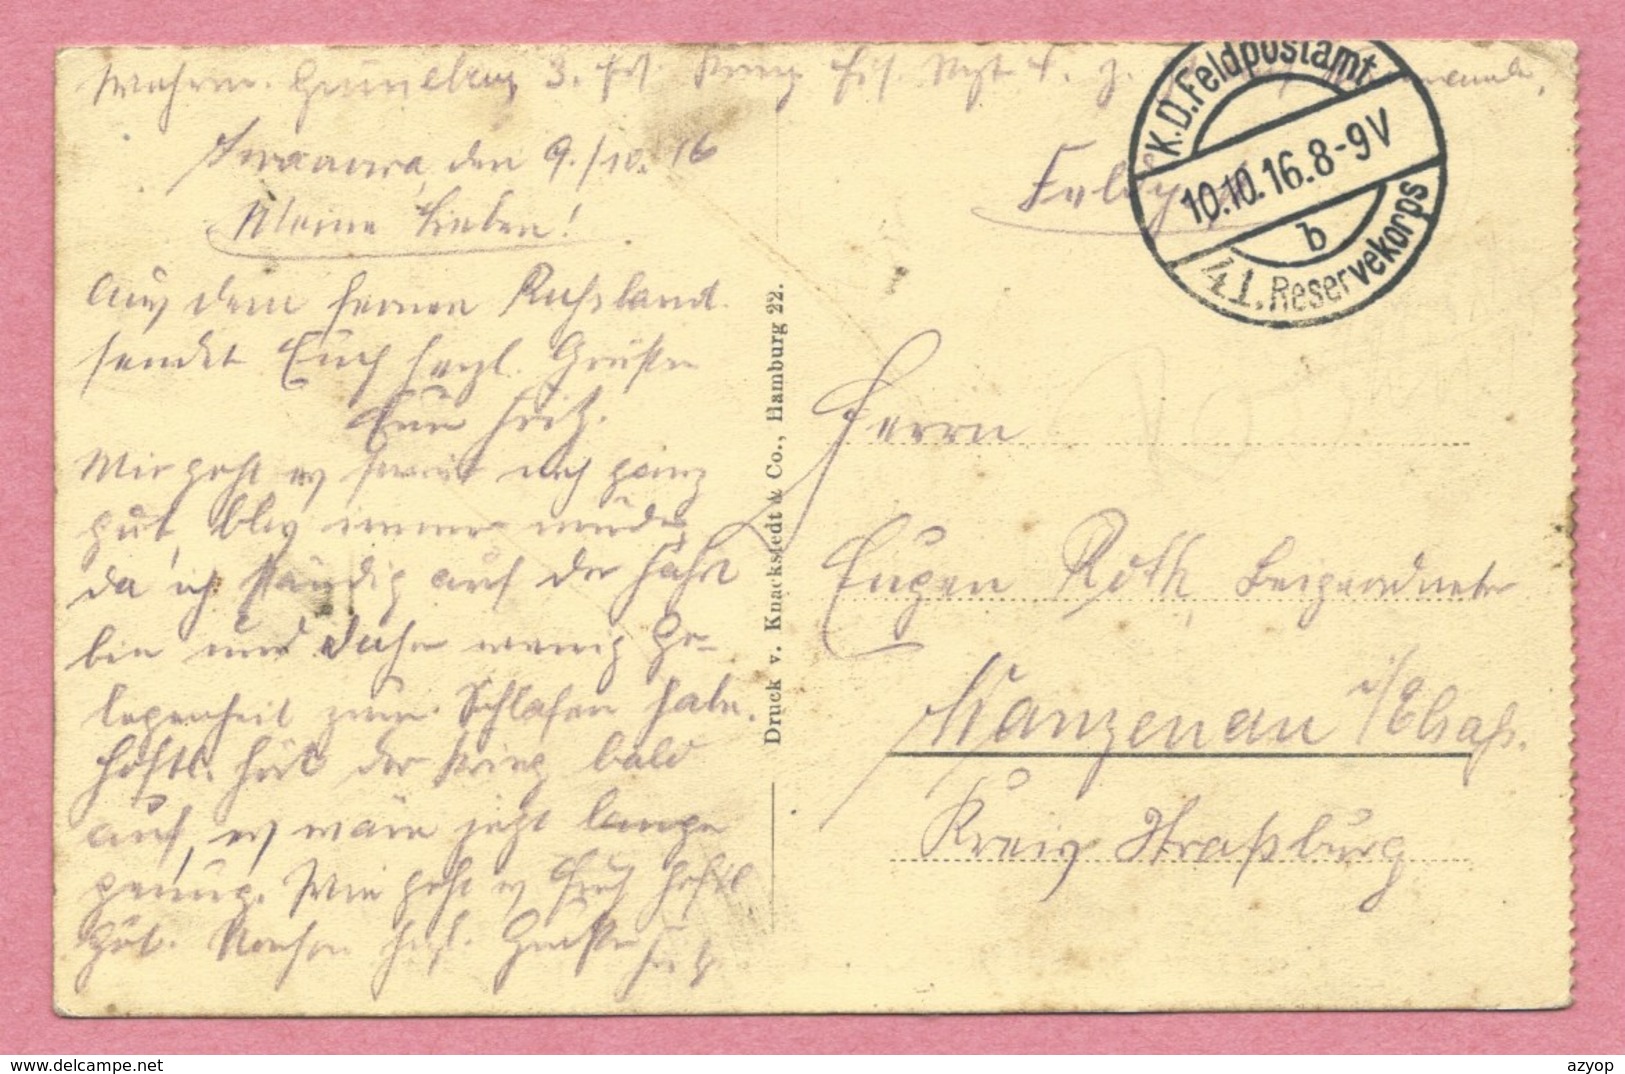 Wehrm. Grüneberg 3.
den 9./10. 16
Meine Lieben!
Aus dem fernen Russland
sendet Euch herzl. Grüße
Euer Fritz.
Mir geht es soweit noch ganz
gut, blos immer müde,
da ich ständig auf der Fahrt
bin und daher wenig Ge-
legenheit zum Schlafen habe.
Hoftl. hört der Krieg bald
auf, es wäre jetzt lange
genug. Wie geht es Euch hoftl
gut. Nochm herzl. Grüße Fritz.
Druck v. Knackstedt & Co., Hamburg 22.
K.D.Feldpostamt
10.10.16.8-9V
b
41.Reservekorps
Herrn
Eugen Roth, Beigeordneter
Wanzenau i/Elsaß.
Kreis Straßburg
azyop